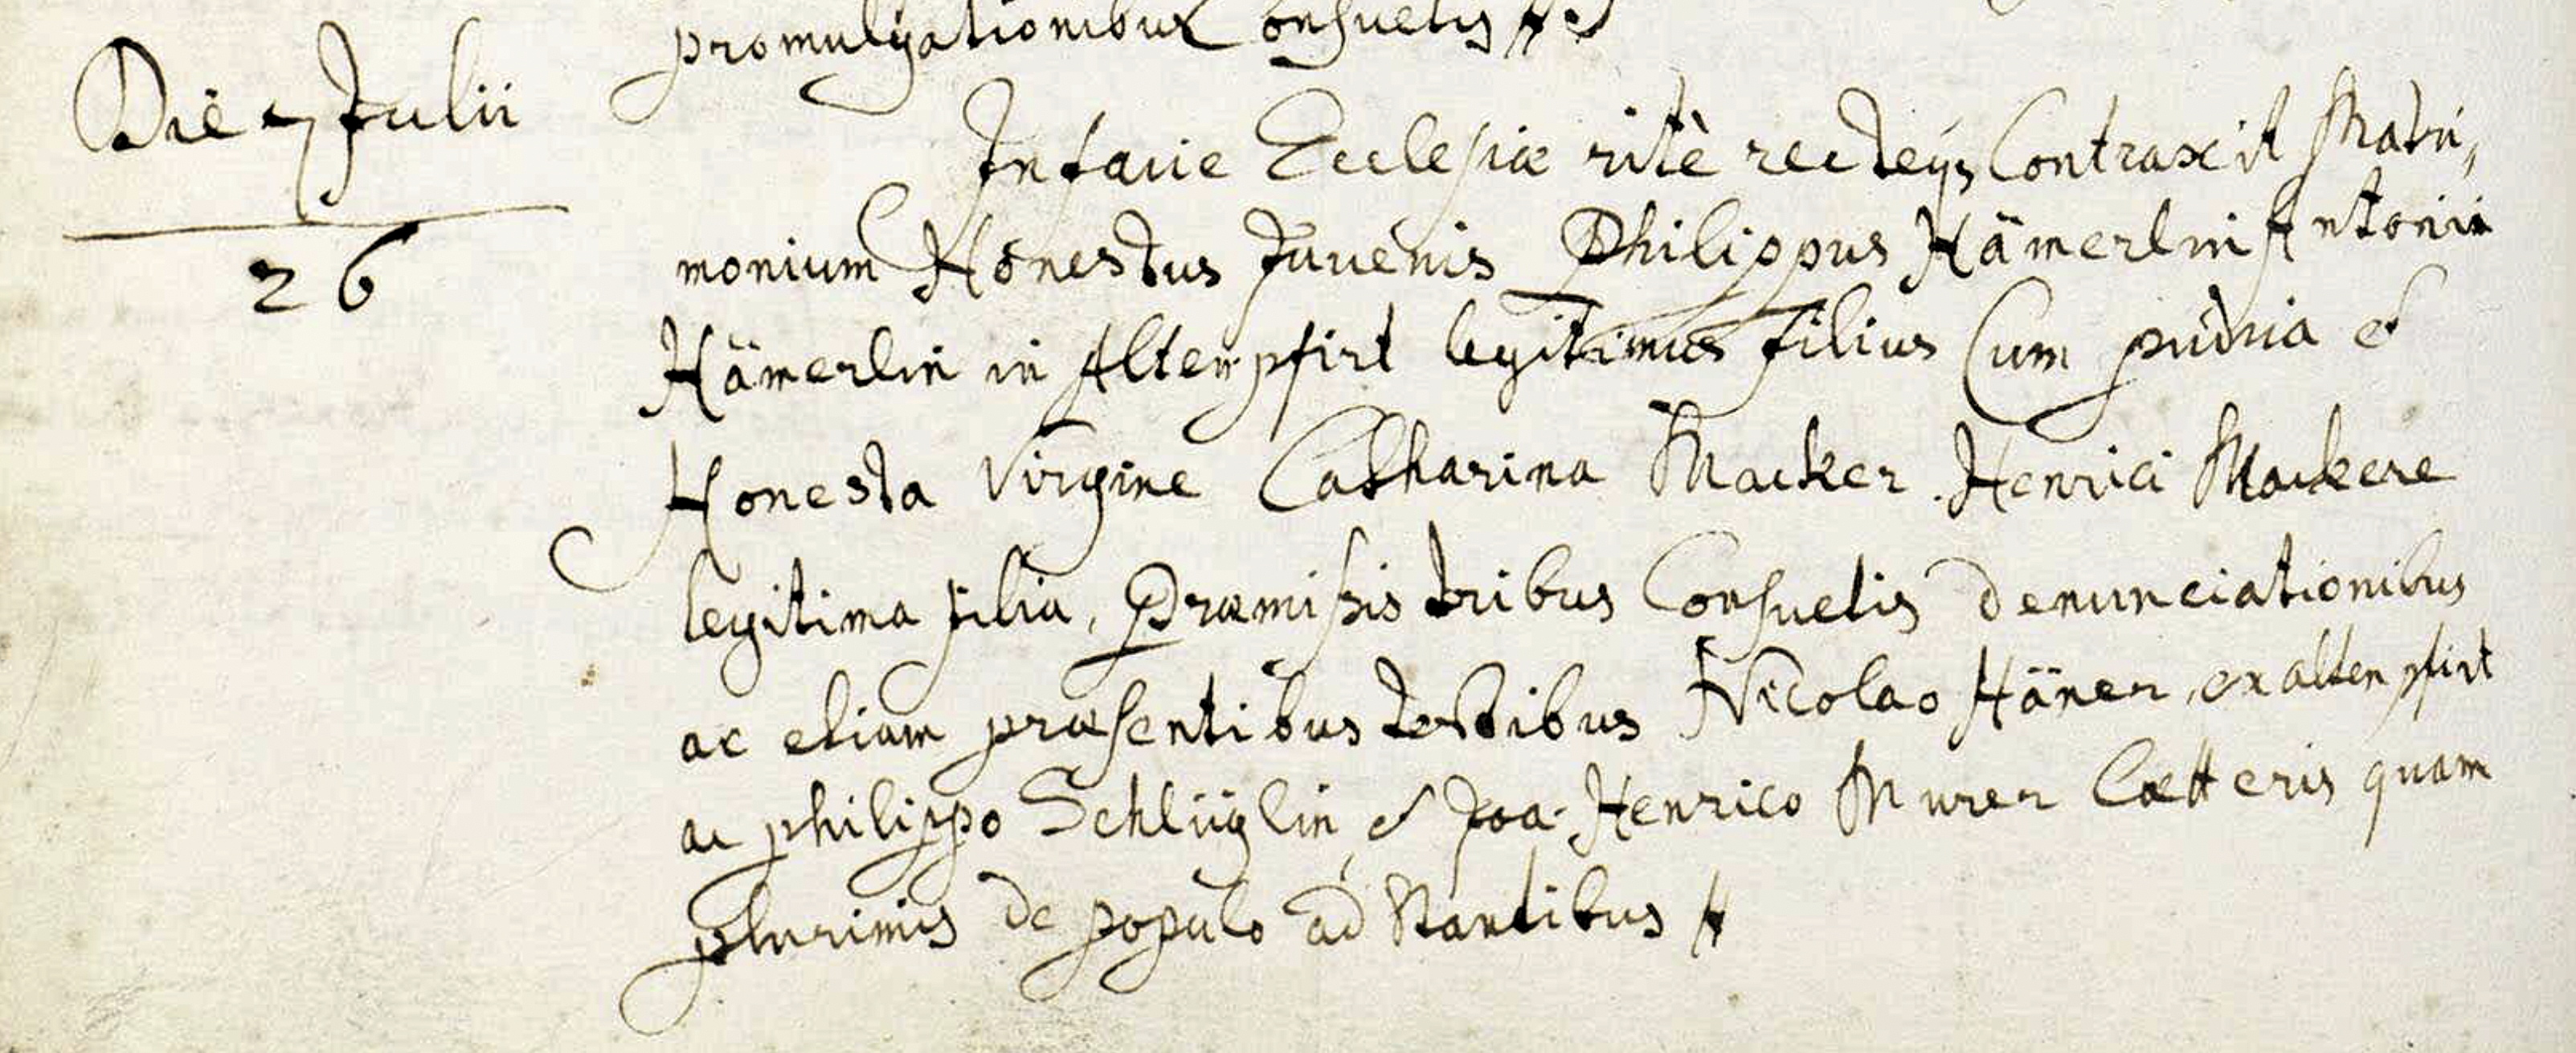 promulgationibus Consuetis
Die 7 Julii
26
In facie Ecclesiæ ritè recteq₃ Contraxit Matri,
monium Honestus Juuenis Philippus Hämerlin Antonii
Hämerlin in Altenpfirt legitimus filius Cum pudica et
Honesta Virgine Catharina Macker Henrici Mackere
legitima filia, Præmissis tribus Consuetis denunciationibus
ac etiam præsentibus testibus Nicolao Häner, ex altenpfirt
ac philippo Schlüglin et Joa. Henrico Murer Cætteris quam
plurimis de populo ad stantibus